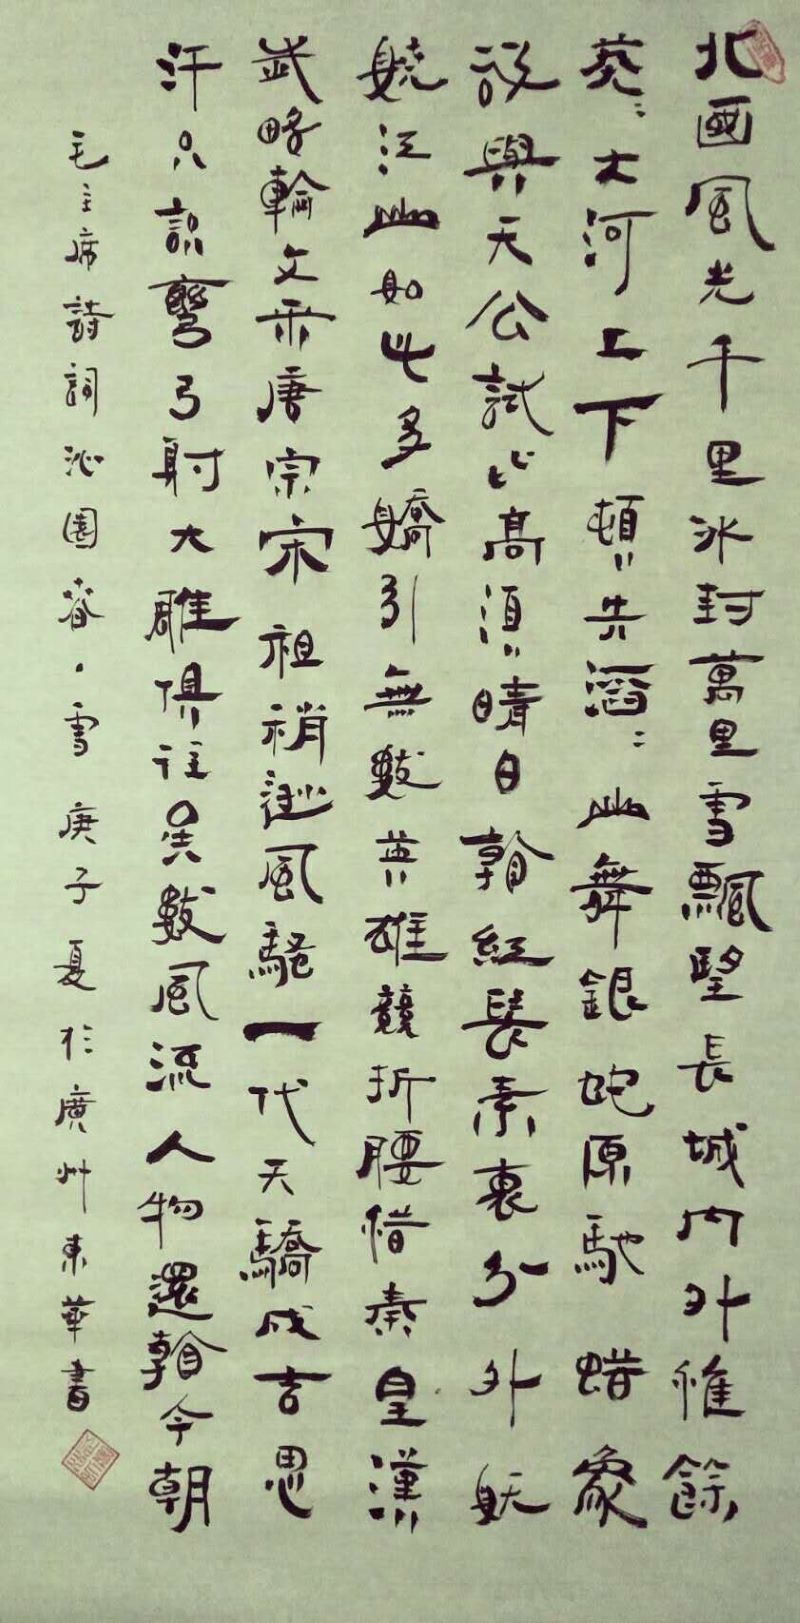 北國風光千里冰封萬里雪飄望長城內外惟餘
莽〻大河上下頓失滔〻山舞銀蛇原馳蜡象
欲與天公試比高須晴日看紅裝素裹分外妖
嬈江山如此多嬌引無數英雄競折腰惜秦皇漢
武略輸文采唐宗宋祖稍遜風騷一代天驕成吉思
汗只識彎弓射大雕俱往矣數風流人物還看今朝
毛主席詩詞沁園春・雪 庚子夏於廣州東華書